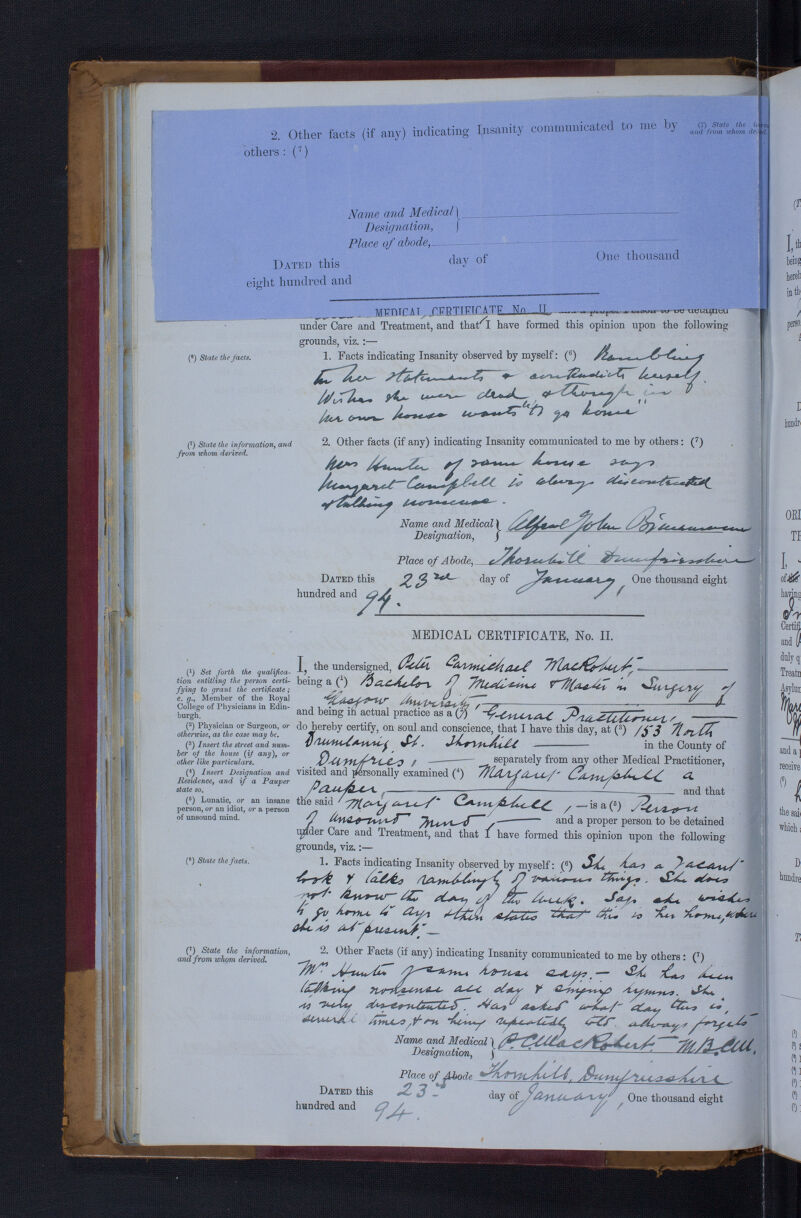 2. Other facts (if any) indicating Insanity communicated to me by
others : (⁷)
(⁷) State the
and from whom
Name and Medical
Designation,
Place of abode,
DATED this day of One thousand
eight hundred and
MEDICAL CERTIFICATE No. II.
and a proper Person to be detained
under Care and Treatment, and that I have formed this opinion upon the following
grounds, viz. :—
(⁶) State the facts.
1. Facts indicating Insanity observed by myself: (⁶) Rambling
in her statements & contradicts herself.
Wishes she were dead, & though in
her own house wants "to go home"
(⁷) State the information, and
from whom derived.
2. Other facts (if any) indicating Insanity communicated to me by others: (⁷)
Mrs Hunter of same house says
Margaret Campbell is always discontented
& talking nonsense.
Name and Medical
Designation,
Alfred John
Place of Abode, Thornhill Dumfriesshire
DATED this 23rd day of January, One thousand eight
hundred and 94.
MEDICAL CERTIFICATE, No. II.
(¹) Set forth the qualifica-
tion entitling the person certi-
fying to grant the certificate;
e. g., Member of the Royal
College of Physicians in Edin-
burgh.
(²) Physician or Surgeon, or
otherwise, as the case may be.
(³) Insert the street and num-
ber of the house (if any), or
other like particulars.
(⁴) Insert Designation and
Residence, and if a Pauper
state so.
(⁵) Lunatic, or an insane
person, or an idiot, or a person
of unsound mind.
I, the undersigned, Peter Carmichael MacRobert,
being a (¹) Bachelor of Medicine & Master in Surgery of
Glasgow University,
and being in actual practice as a (²) General Practitioner,
do hereby certify, on soul and conscience, that I have this day, at (³) 153 North
Drumlanrig St. Thornhill in the County of
Dumfries, separately from any other Medical Practitioner,
visited and personally examined (⁴) Margaret Campbell a
Pauper, and that
the said Margaret Campbell, is a (⁵) Person
of unsound mind, and a proper person to be detained
under Care and Treatment, and that I have formed this opinion upon the following
grounds, viz. :—
(⁶) State the facts.
1. Facts indicating Insanity observed by myself: (⁶) She has a vacant
look & talks ramblingly of various things. She does
not know the day of the week. Says she wishes
to go home to Ayr & then states that this is her home, where
she is at present.—
(⁷) State the information,
and from whom derived.
2. Other Facts (if any) indicating Insanity communicated to me by others: (⁷)
Mrs Hunter of same house says.— She has been
talking nonsense all day & singing hymns. She
is very discontented. Has asked what day this is,
several times, & on being repeatedly told always forgets
Name and Medical
Designation,
P. C. MacRobert. M.B.C.M.
Place of Abode Thornhill, Dumfriesshire
DATED this 23rd day of January, One thousand eight
hundred and 94.